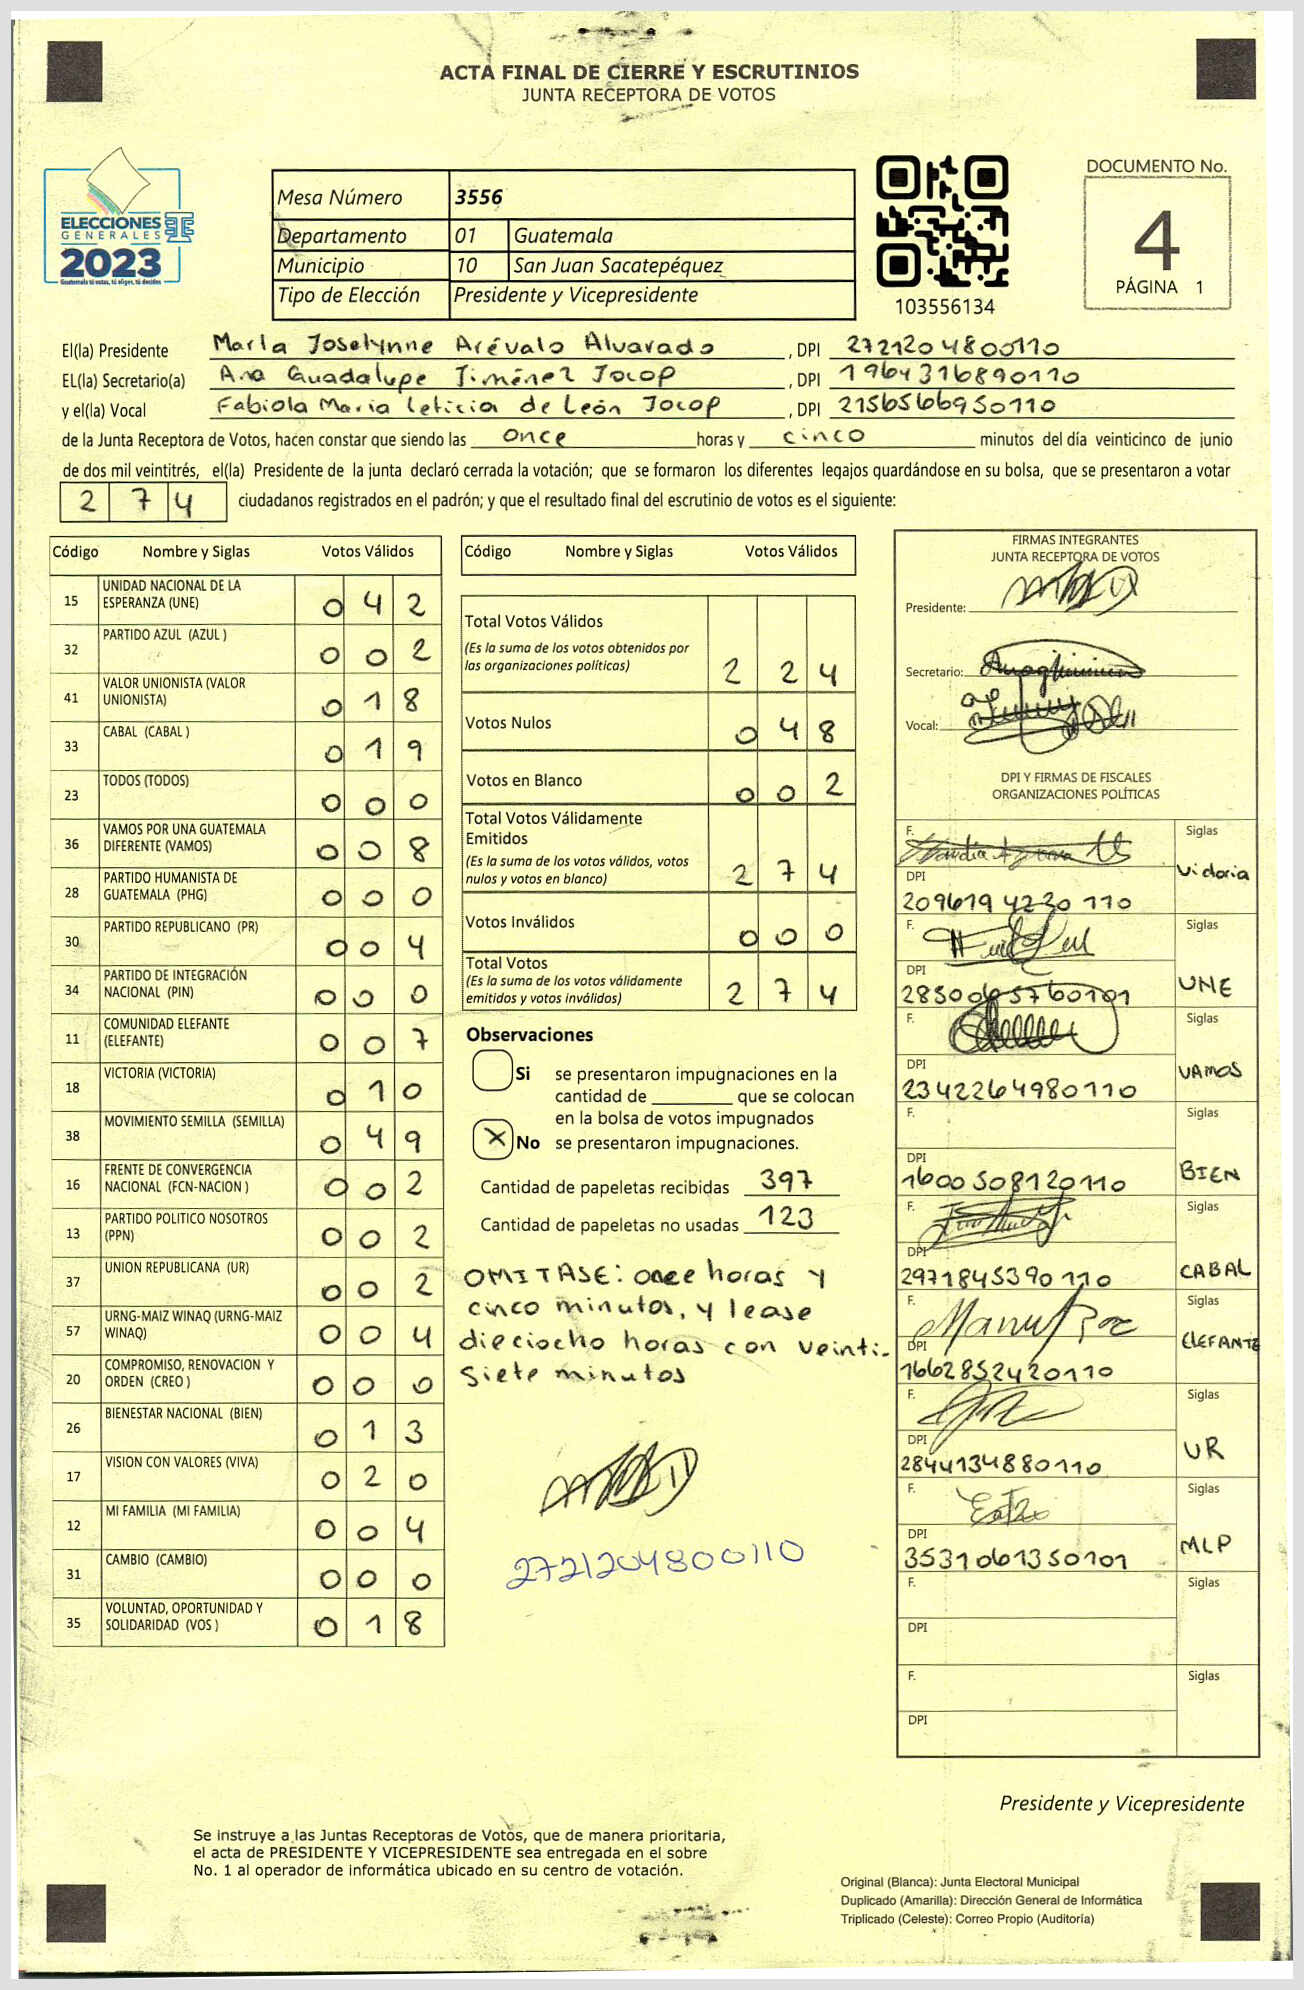 ACTA FINAL DE CIERRE Y ESCRUTINIOS
JUNTA RECEPTORA DE VOTOS
ELECCIONES
GENERALES
2023
Guatemala tú votas, tú eliges, tú decides
Mesa Número 3556
Departamento 01 Guatemala
Municipio 10 San Juan Sacatepéquez
Tipo de Elección Presidente y Vicepresidente
103556134
DOCUMENTO No.
4
PÁGINA 1
El(la) Presidente Marla Joselynne Arévalo Alvarado , DPI 2721204800110
EL(la) Secretario(a) Ana Guadalupe Jiménez Jocop , DPI 1964316890110
y el(la) Vocal Fabiola Maria Leticia de León Jocop , DPI 2156566950110
de la Junta Receptora de Votos, hacen constar que siendo las once horas y cinco minutos del día veinticinco de junio
de dos mil veintitrés, el(la) Presidente de la junta declaró cerrada la votación; que se formaron los diferentes legajos guardándose en su bolsa, que se presentaron a votar
2 7 4 ciudadanos registrados en el padrón; y que el resultado final del escrutinio de votos es el siguiente:
Código Nombre y Siglas Votos Válidos
15 UNIDAD NACIONAL DE LA
ESPERANZA (UNE) 0 4 2
32 PARTIDO AZUL (AZUL ) 0 0 2
41 VALOR UNIONISTA (VALOR
UNIONISTA) 0 1 8
33 CABAL (CABAL ) 0 1 9
23 TODOS (TODOS) 0 0 0
36 VAMOS POR UNA GUATEMALA
DIFERENTE (VAMOS) 0 0 8
28 PARTIDO HUMANISTA DE
GUATEMALA (PHG) 0 0 0
30 PARTIDO REPUBLICANO (PR) 0 0 4
34 PARTIDO DE INTEGRACIÓN
NACIONAL (PIN) 0 0 0
11 COMUNIDAD ELEFANTE
(ELEFANTE) 0 0 7
18 VICTORIA (VICTORIA) 0 1 0
38 MOVIMIENTO SEMILLA (SEMILLA) 0 4 9
16 FRENTE DE CONVERGENCIA
NACIONAL (FCN-NACION ) 0 0 2
13 PARTIDO POLITICO NOSOTROS
(PPN) 0 0 2
37 UNION REPUBLICANA (UR) 0 0 2
57 URNG-MAIZ WINAQ (URNG-MAIZ
WINAQ) 0 0 4
20 COMPROMISO, RENOVACION Y
ORDEN (CREO ) 0 0 0
26 BIENESTAR NACIONAL (BIEN) 0 1 3
17 VISION CON VALORES (VIVA) 0 2 0
12 MI FAMILIA (MI FAMILIA) 0 0 4
31 CAMBIO (CAMBIO) 0 0 0
35 VOLUNTAD, OPORTUNIDAD Y
SOLIDARIDAD (VOS ) 0 1 8
Código Nombre y Siglas Votos Válidos
Total Votos Válidos
(Es la suma de los votos obtenidos por
las organizaciones políticas) 2 2 4
Votos Nulos 0 4 8
Votos en Blanco 0 0 2
Total Votos Válidamente
Emitidos
(Es la suma de los votos válidos, votos
nulos y votos en blanco) 2 7 4
Votos Inválidos 0 0 0
Total Votos
(Es la suma de los votos válidamente
emitidos y votos inválidos) 2 7 4
Observaciones
Si se presentaron impugnaciones en la
cantidad de ________ que se colocan
en la bolsa de votos impugnados
X No se presentaron impugnaciones.
Cantidad de papeletas recibidas 397
Cantidad de papeletas no usadas 123
OMITASE: once horas y
cinco minutos, y lease
dieciocho horas con veinti-
siete minutos
2721204800110
FIRMAS INTEGRANTES
JUNTA RECEPTORA DE VOTOS
Presidente:
Secretario:
Vocal:
DPI Y FIRMAS DE FISCALES
ORGANIZACIONES POLÍTICAS
F. Siglas
Victoria
DPI
2096194230110
F. Siglas
DPI
2850065760101 UNE
F. Siglas
DPI
2342264980110 VAMOS
F. Siglas
DPI
1600508120110 BIEN
F. Siglas
DPI
2971845390110 CABAL
F. Siglas
DPI
1662852420110 ELEFANTE
F. Siglas
DPI
2844134880110 UR
F. Siglas
DPI
3531061350101 MLP
F. Siglas
DPI
F. Siglas
DPI
Presidente y Vicepresidente
Se instruye a las Juntas Receptoras de Votos, que de manera prioritaria,
el acta de PRESIDENTE Y VICEPRESIDENTE sea entregada en el sobre
No. 1 al operador de informática ubicado en su centro de votación.
Original (Blanca): Junta Electoral Municipal
Duplicado (Amarilla): Dirección General de Informática
Triplicado (Celeste): Correo Propio (Auditoría)